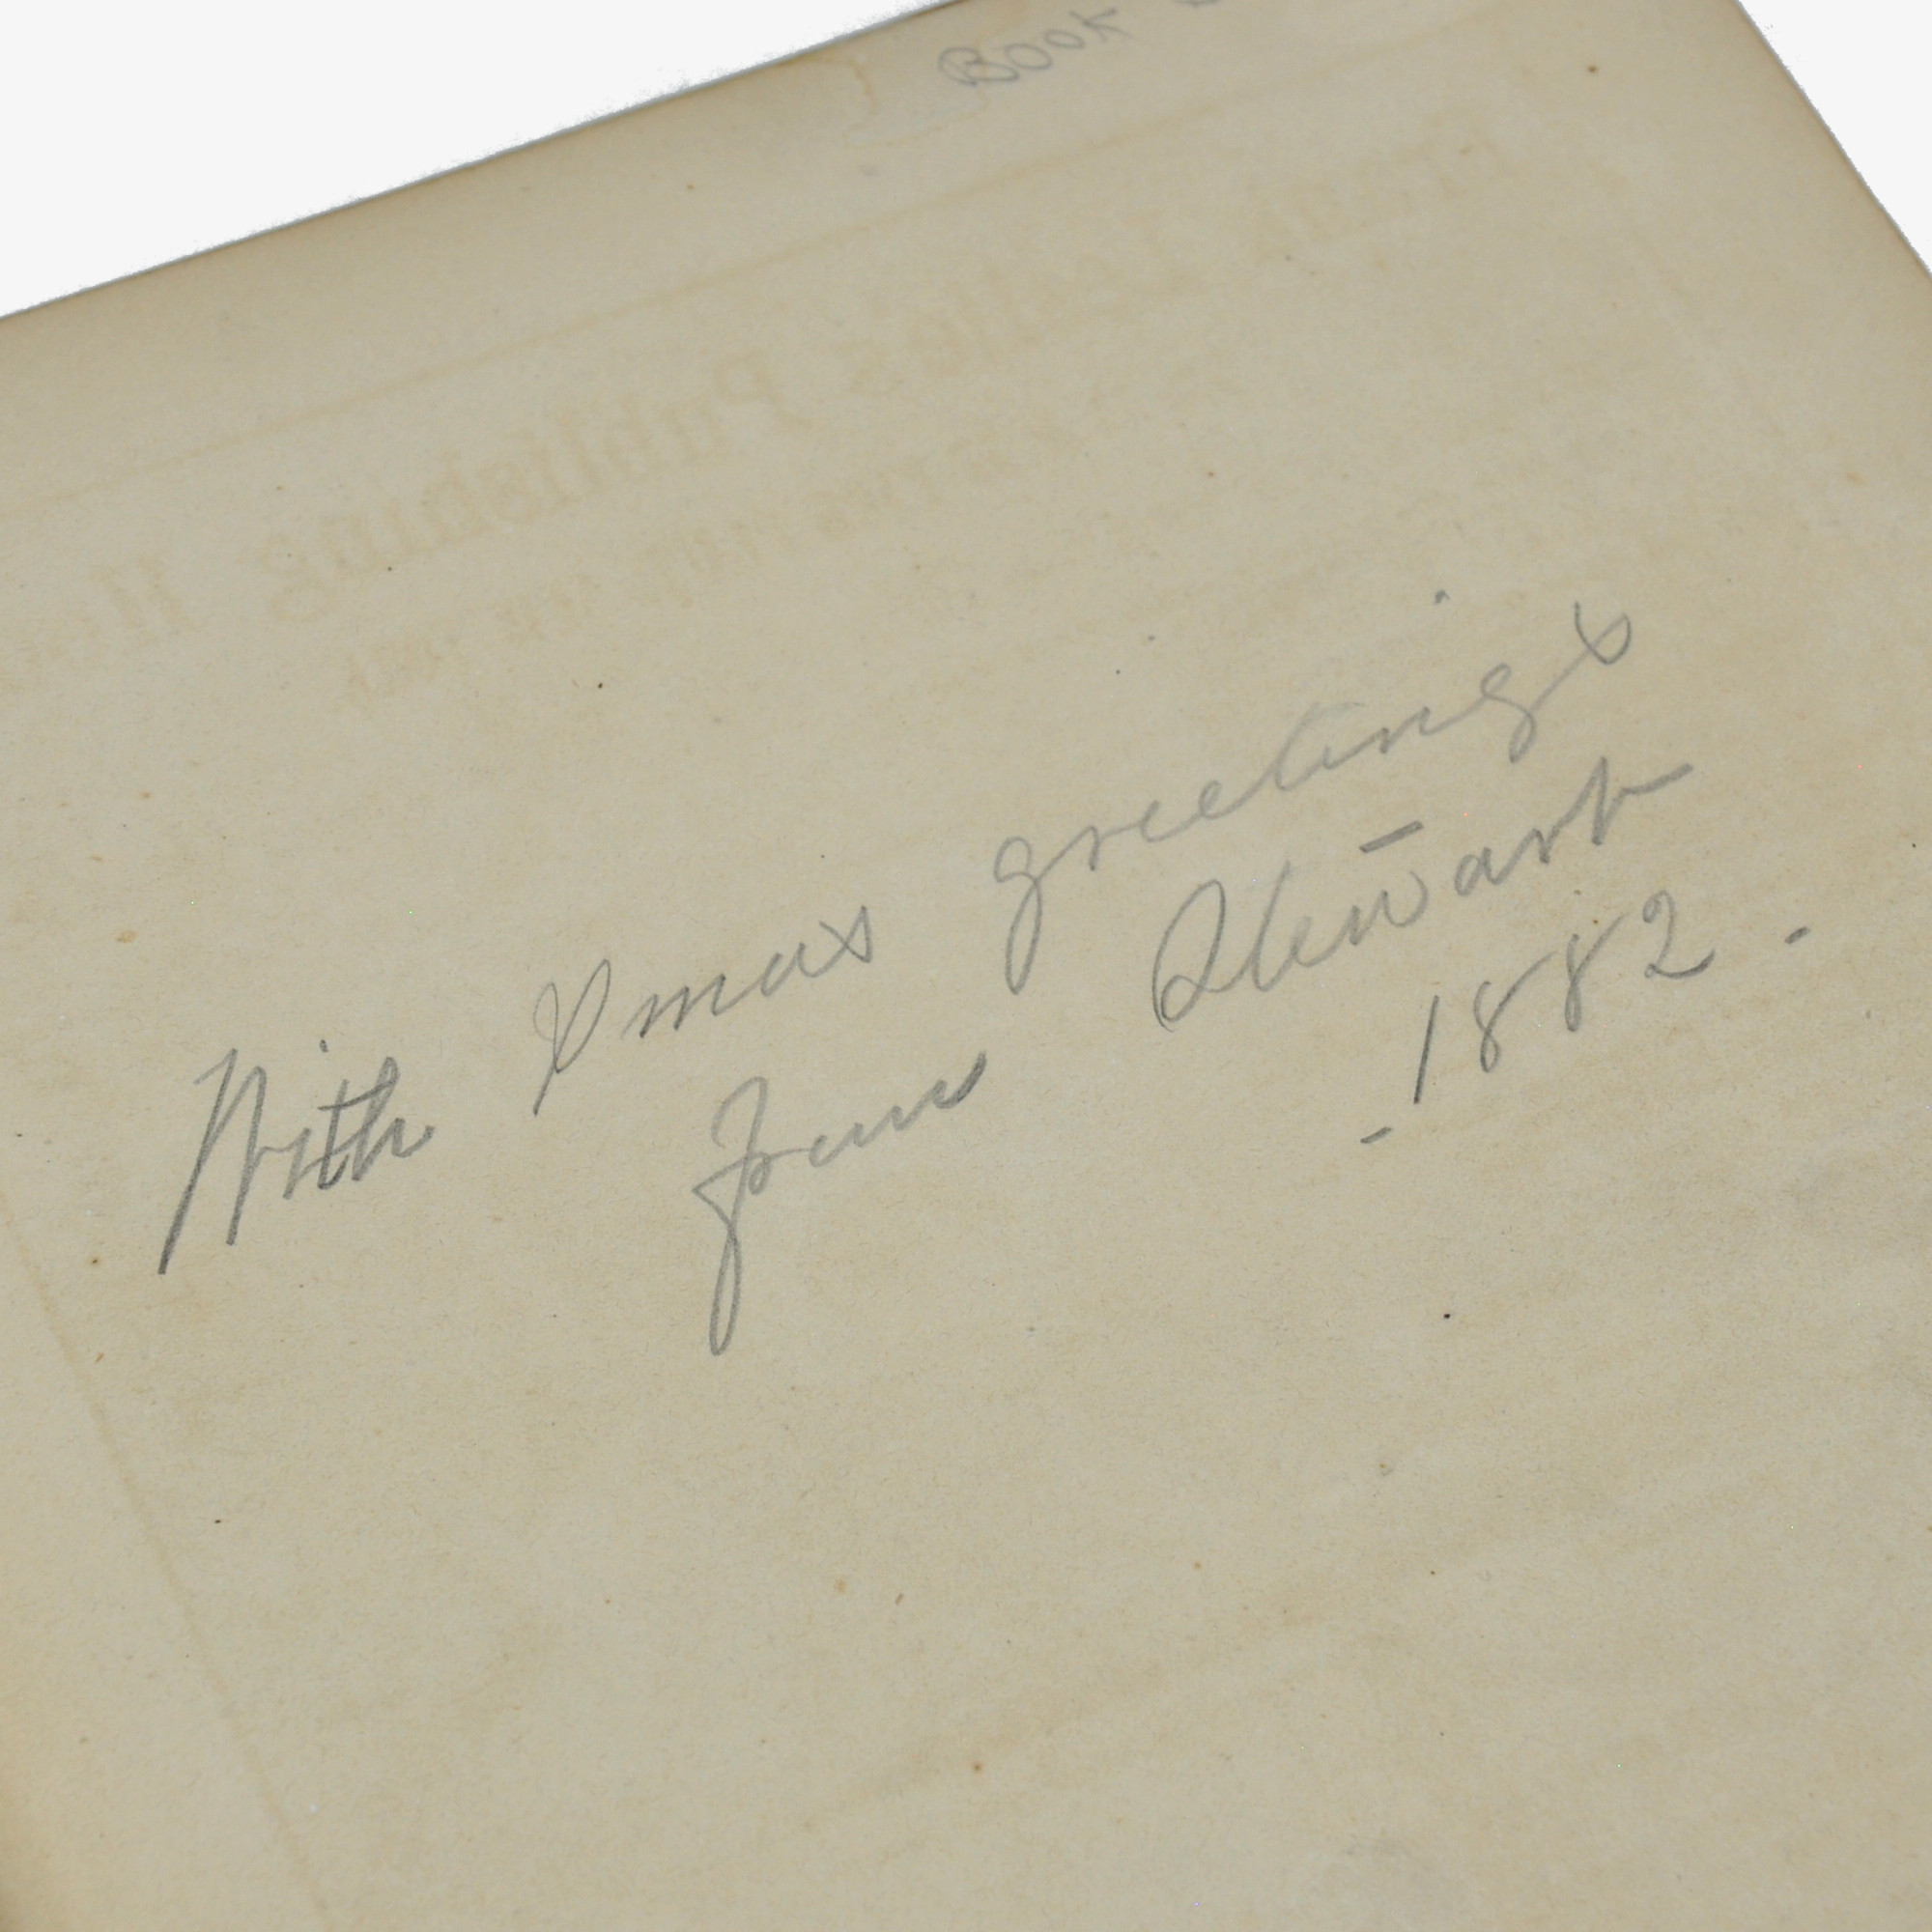 Book
With Xmas greetings
from Stewart
- 1882 -